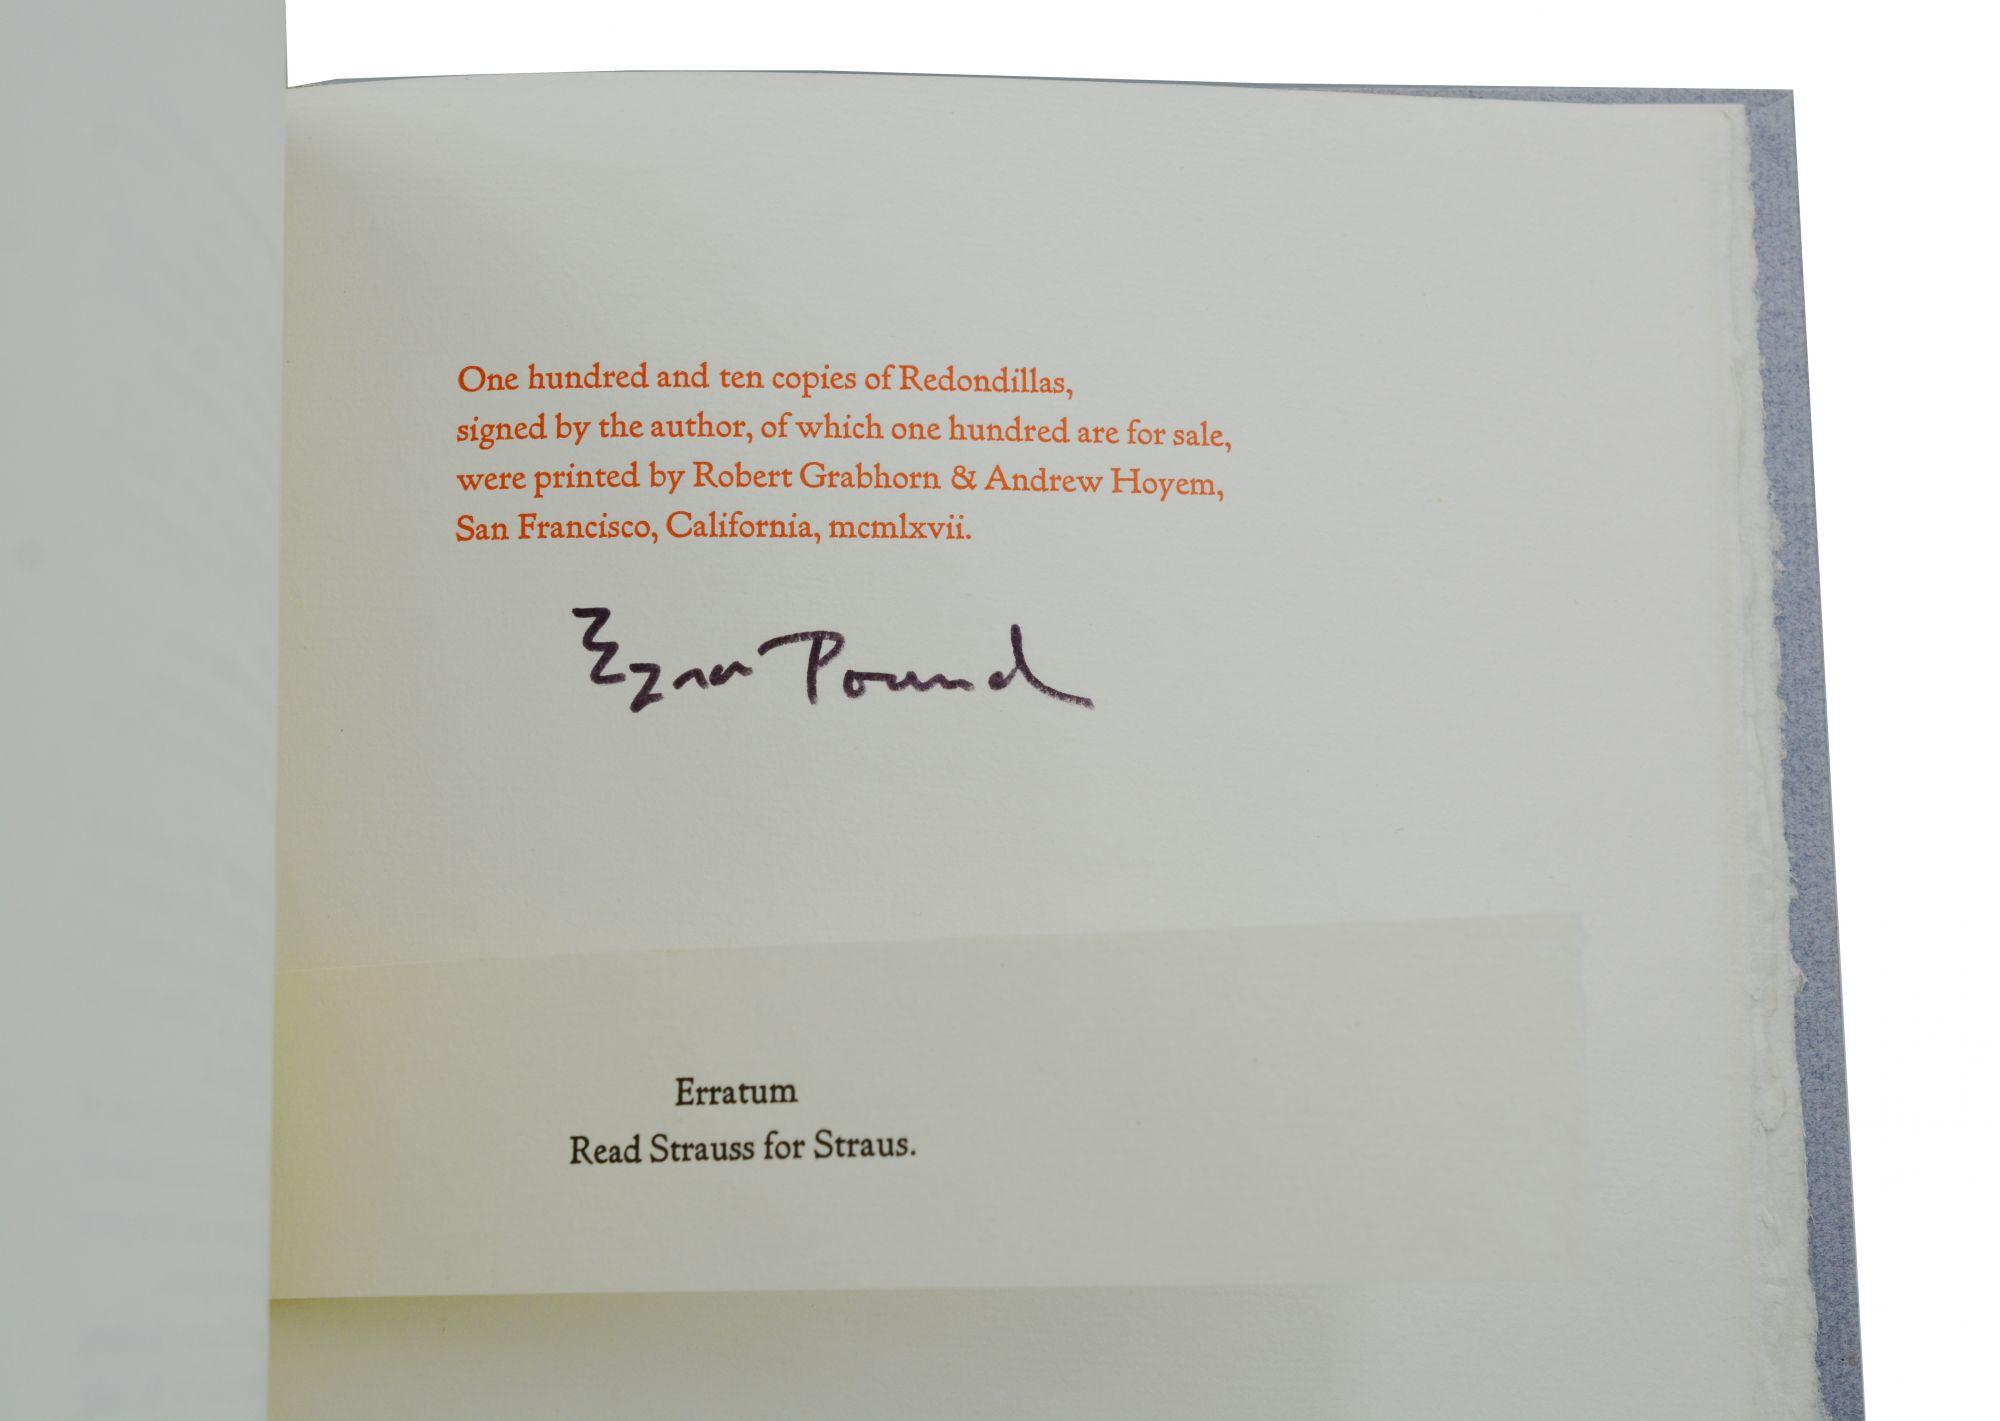 One hundred and ten copies of Redondillas,
signed by the author, of which one hundred are for sale,
were printed by Robert Grabhorn & Andrew Hoyem,
San Francisco, California, mcmlxvii.
Ezra Pound
Erratum
Read Strauss for Straus.